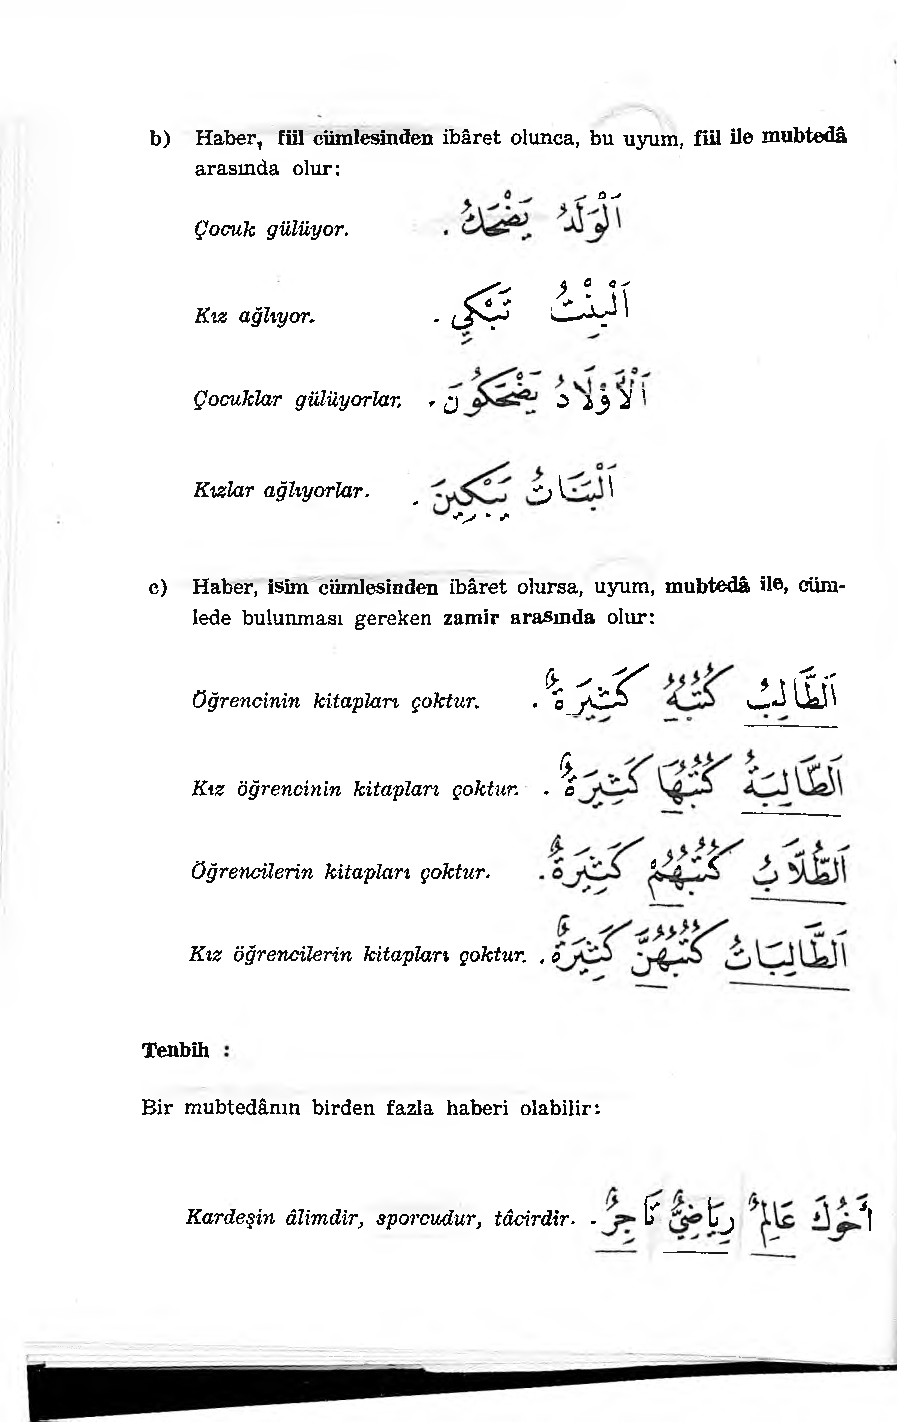 b) Haber, fiil cümlesinden ibâret olunca, bu uyum, fiil ile mubtedâ
arasında olur:
Çocuk gülüyor. اَلْوَلَدُ يَضْحَكُ .
Kız ağlıyor. اَلْبِنْتُ تَبْكِي .
Çocuklar gülüyorlar. اَلْأَوْلَادُ يَضْحَكُونَ .
Kızlar ağlıyorlar. اَلْبَنَاتُ يَبْكِينَ .
c) Haber, isim cümlesinden ibâret olursa, uyum, mubtedâ ile, cüm-
lede bulunması gereken zamir arasında olur:
Öğrencinin kitapları çoktur. اَلطَّالِبُ كُتُبُهُ كَثِيرَةٌ .
Kız öğrencinin kitapları çoktur. اَلطَّالِبَةُ كُتُبُهَا كَثِيرَةٌ .
Öğrencilerin kitapları çoktur. اَلطُّلَّابُ كُتُبُهُمْ كَثِيرَةٌ .
Kız öğrencilerin kitapları çoktur. اَلطَّالِبَاتُ كُتُبُهُنَّ كَثِيرَةٌ .
Tenbih :
Bir mubtedânın birden fazla haberi olabilir:
Kardeşin âlimdir, sporcudur, tâcirdir. أَخُوكَ عَالِمٌ رِيَاضِيٌّ تَاجِرٌ .